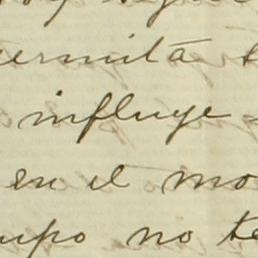 ermita
influye
en el mo
upo no te